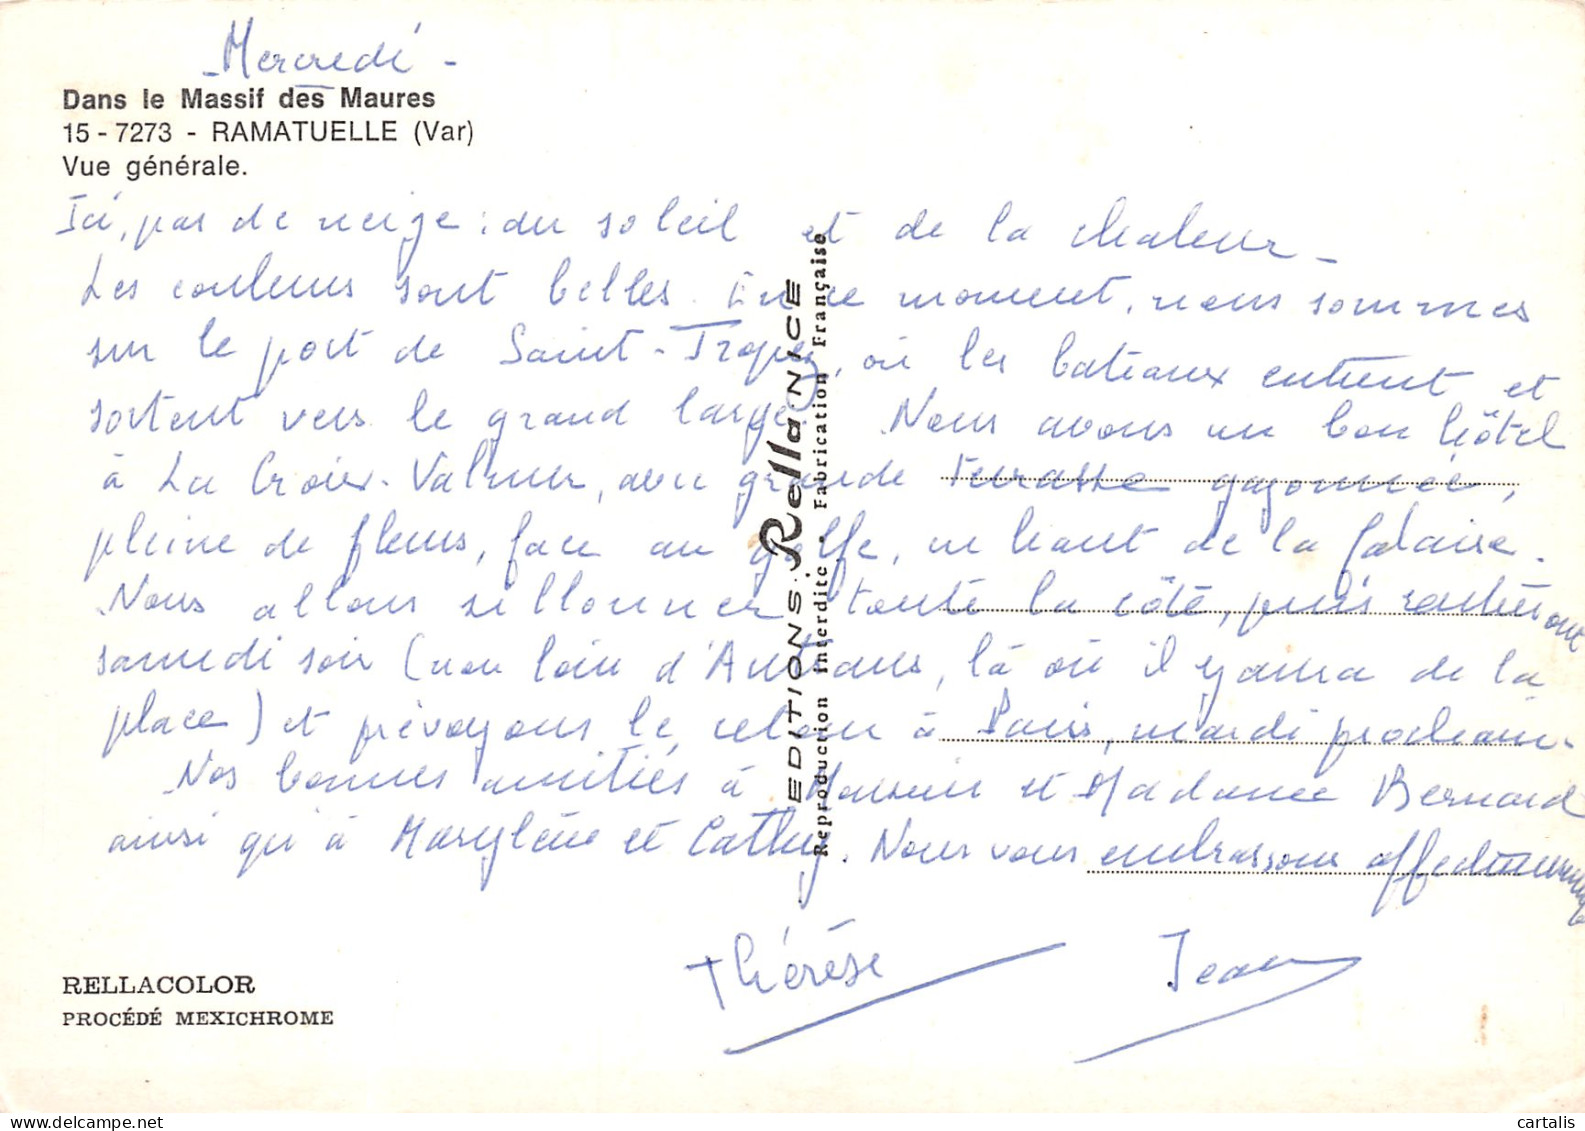 - Mercredi -
Dans le Massif des Maures
15 - 7273 - RAMATUELLE (Var)
Vue générale.
Ici, pas de neige : du soleil et de la chaleur -
Les couleurs sont belles. En ce moment, nous sommes
sur le port de Saint-Tropez, où les bateaux entrent et
sortent vers le grand large. Nous avons un bon hôtel
à La Croix-Valmer, avec grande terrasse gazonnée,
pleine de fleurs, face au golfe, en haut de la falaise.
Nous allons sillonner toute la côte, puis
samedi soir (non loin d'Antrans, là où il y aura de la
place) et prévoyons le retour à Paris, mardi prochain.
Nos bonnes amitiés à Monsieur et Madame Bernard
ainsi qu'à Marylène et Cathy. Nous vous embrassons affectueusement
Thérèse
Jean
EDITIONS Rella NICE
Reproduction Interdite - Fabrication Française
RELLACOLOR
PROCÉDÉ MEXICHROME
cartalis